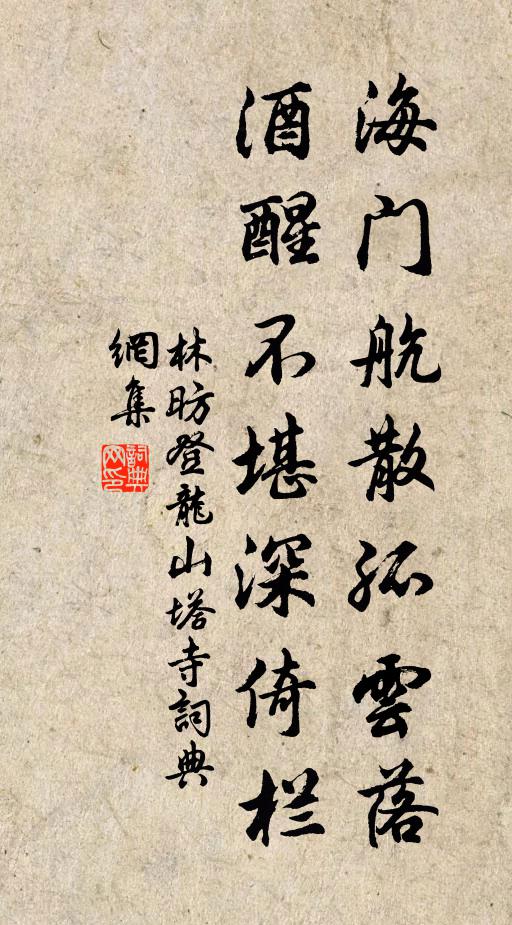 海门航散孤雲落
酒醒不堪深倚栏
林昉登龍山塔寺詞典
網集
詞典
网印